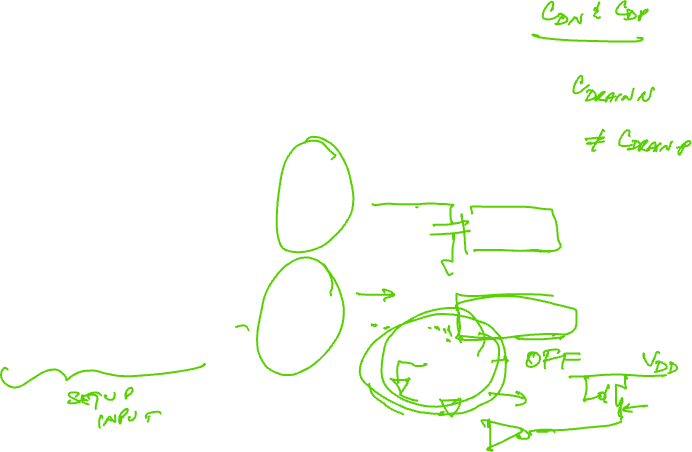 CDN & CDP
CDRAINN
≠ CDRAINP
OFF
VDD
SETUP
INPUT